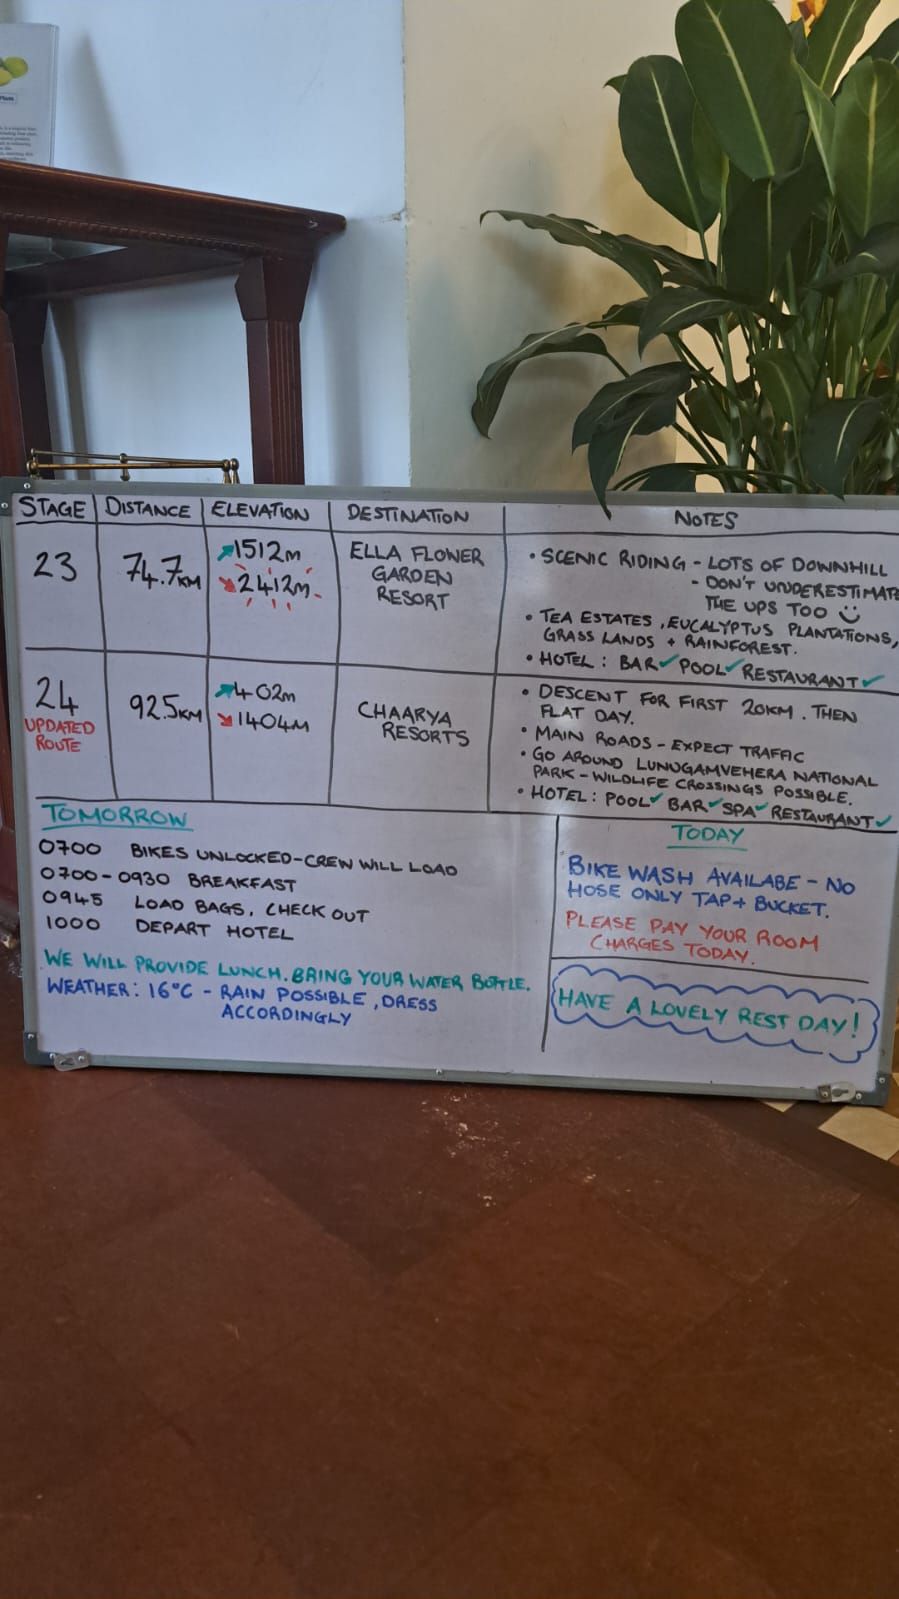 STAGE DISTANCE ELEVATION DESTINATION NOTES
23 74.7KM
↗1512m
↘2412m
ELLA FLOWER
GARDEN
RESORT
• SCENIC RIDING - LOTS OF DOWNHILL
- DON'T UNDERESTIMATE
THE UPS TOO
• TEA ESTATES, EUCALYPTUS PLANTATIONS,
GRASS LANDS + RAINFOREST.
• HOTEL: BAR✓ POOL✓ RESTAURANT✓
24
UPDATED
ROUTE
92.5KM
↗402m
↘1404M
CHAARYA
RESORTS
• DESCENT FOR FIRST 20KM. THEN
FLAT DAY.
• MAIN ROADS - EXPECT TRAFFIC
• GO AROUND LUNUGAMVEHERA NATIONAL
PARK - WILDLIFE CROSSINGS POSSIBLE.
• HOTEL: POOL✓ BAR✓ SPA✓ RESTAURANT✓
TOMORROW
0700 BIKES UNLOCKED-CREW WILL LOAD
0700-0930 BREAKFAST
0945 LOAD BAGS, CHECK OUT
1000 DEPART HOTEL
WE WILL PROVIDE LUNCH. BRING YOUR WATER BOTTLE.
WEATHER: 16°C - RAIN POSSIBLE, DRESS
ACCORDINGLY
TODAY
BIKE WASH AVAILABE - NO
HOSE ONLY TAP + BUCKET.
PLEASE PAY YOUR ROOM
CHARGES TODAY.
HAVE A LOVELY REST DAY!